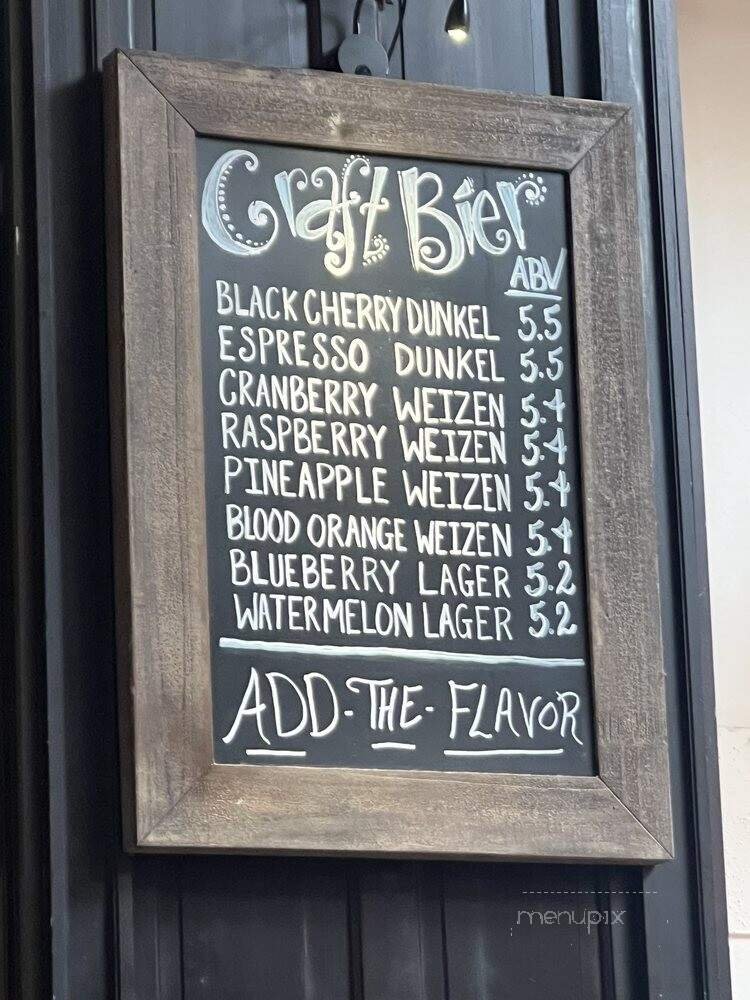 Craft Bier
ABV
BLACK CHERRY DUNKEL 5.5
ESPRESSO DUNKEL 5.5
CRANBERRY WEIZEN 5.4
RASPBERRY WEIZEN 5.4
PINEAPPLE WEIZEN 5.4
BLOOD ORANGE WEIZEN 5.4
BLUEBERRY LAGER 5.2
WATERMELON LAGER 5.2
ADD-THE-FLAVOR
menupix